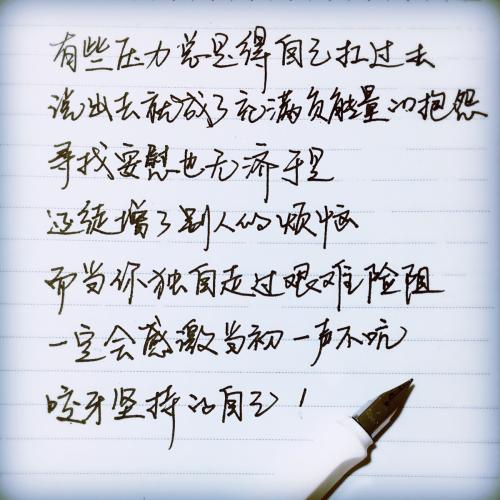 有些压力总是得自己扛过去
说出去就成了充满负能量的抱怨
寻找安慰也无济于是
还徒增了别人的烦恼
而当你独自走过艰难险阻
一定会感激当初一声不吭
咬牙坚持的自己！